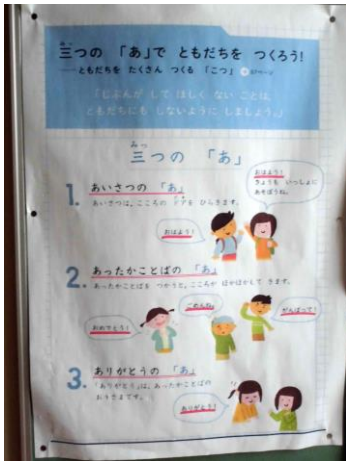 三つの 「あ」で ともだちを つくろう!
みっ
——ともだちを たくさん つくる 「こつ」
「じぶんが して ほしく ない ことは、
ともだちにも しないように しましょう。」
みっ
三つの 「あ」
1. あいさつの 「あ」
あいさつは、こころの ドアを ひらきます。
おはよう!
きょうも いっしょに
あそぼうね。
おはよう!
2. あったかことばの 「あ」
あったかことばを つかうと、こころが ぽかぽかして きます。
おめでとう!
ごめんね。
がんばって!
3. ありがとうの 「あ」
「ありがとう」は、あったかことばの
おうさまです。
ありがとう!